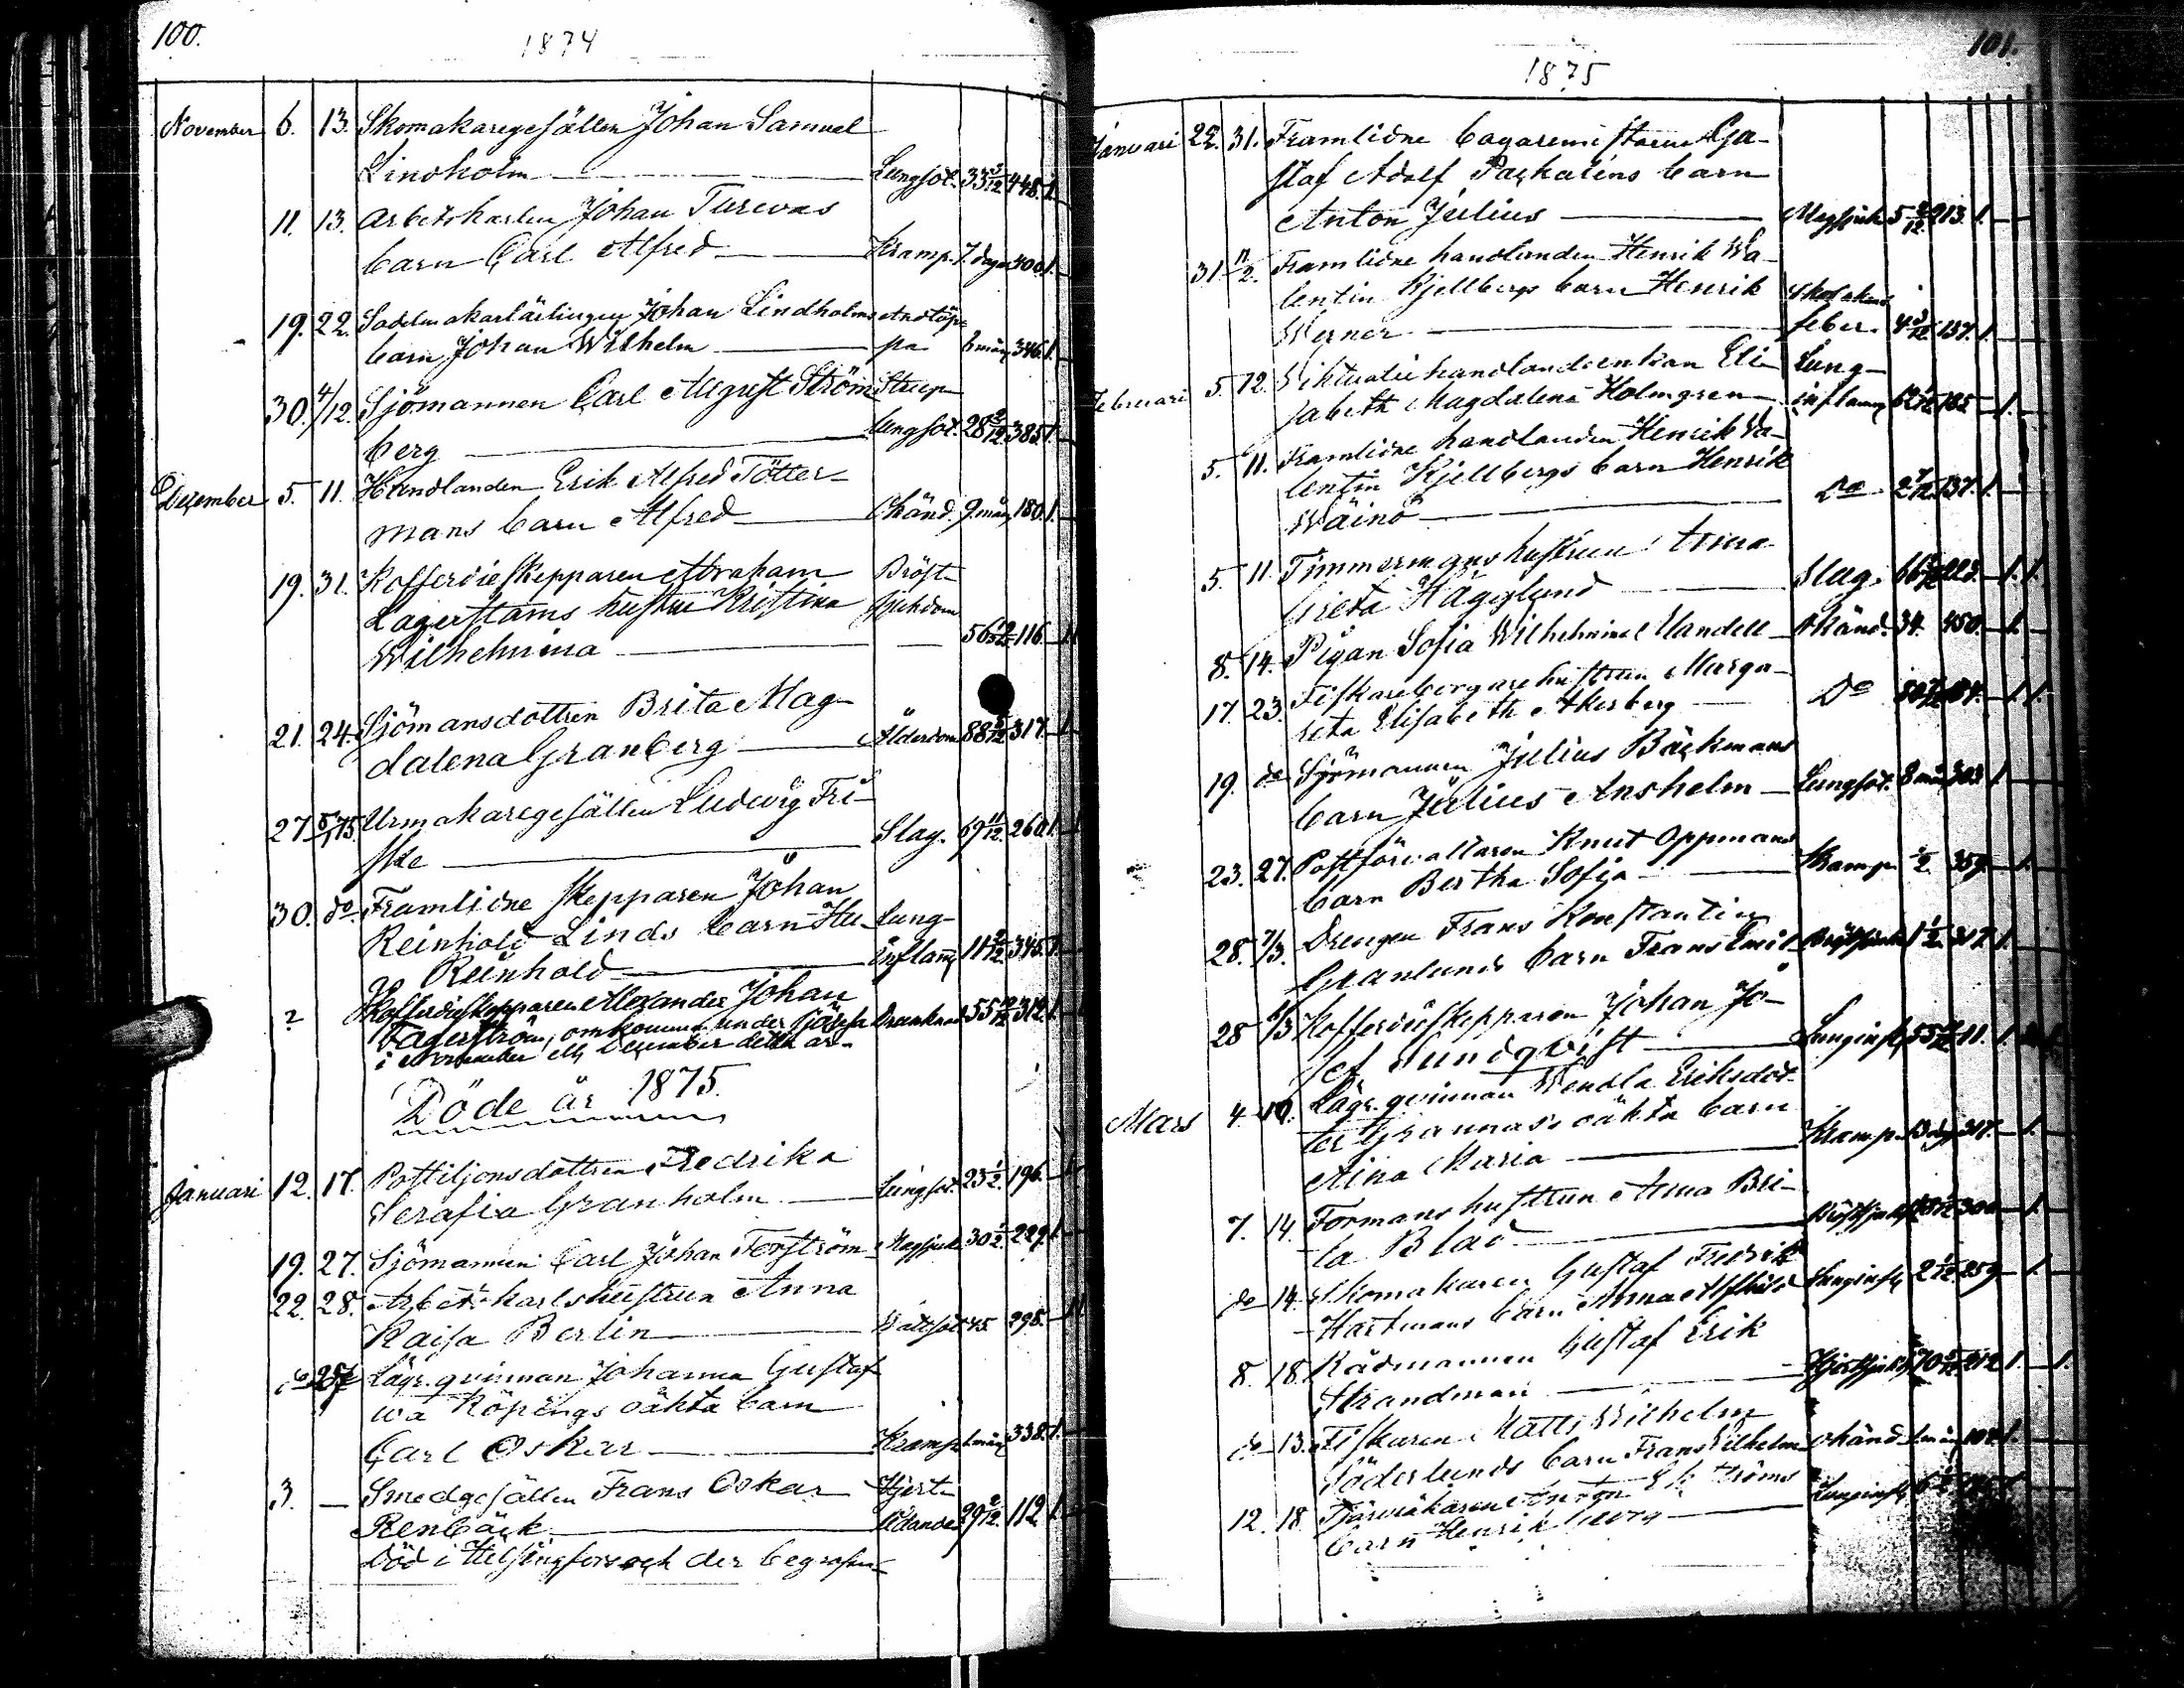 100.
1874
November 6. 13. Skomakaregesällen Johan Samuel
Lindholm Lungsot. 33 448. 1.
11. 13. Arbetskarlen Johan Turevas
barn Carl Alfred Kramp. 7 dagar 400 1.
19. 22. Sadelmakarlärlingen Johan Lindholms Andtäp-
barn Johan Wilhelm pa 346. 1.
30. 4/12. Sjömannen Carl August Ström- Strup-
berg lungsot. 28 2/12 385 1.
December 5. 11. Handlanden Erik Alfred Tötter-
mans barn Alfred Okänd. 9 mån 180. 1.
19. 31. Kofferdieskepparen Abraham Bröst-
Lagerstams hustru Kristina sjukdom
Wilhelmina 56 116.
21. 24. Sjömansdottren Brita Mag-
dalena Granberg Ålderdom 88 317. 1.
27 5/1 75. Urmakaregesällen Ludwig Fri-
ske Slag. 69 11/12. 260 1.
30. do Framlidne Skepparen Johan
Reinhold Linds barn Lung-
Reinhold inflam 11 345. 1.
? Kofferdieskepparen Alexander Johan
Fagerström, omkommen under sjöresa Drunknad 55 312. 1.
i November el. December detta år.
Döde år 1875.
Januari 12. 17. Postiljonsdottren Fredrika
Serafia Granholm Lungsot. 23 1/2. 196.
19. 27. Sjömannen Carl Johan Forström Magsjuk. 30 1/2. 229. 1.
22. 28. Arbetskarlshustrun Anna
Kaisa Berlin Wattsot 45 298.
do Lägr. qvinnan Johanna Gustaf-
wa Köpings oäkta barn
Carl Oskar Kramp 338. 1.
3. — Smedgesällen Frans Oskar Hjert-
Renbäck lidande 39 2/12. 112 1.
Död i Helsingfors och der begrafven
101.
1875
Januari 22. 31. Framlidne bagaremästaren Gu-
staf Adolf Paskaléns barn
Anton Julius Magsjuk 5 213. 1.
31. 11/2. Framlidne handlanden Henrik Wa-
lentin Kjellbergs barn Henrik Skarlakans
Werner feber. 4 137. 1.
Februari 5. 12. Viktualiehandlandeenkan Eli- Lung-
sabeth Magdalena Holmgren inflam 62 185 1.
5. 11. Framlidne handlanden Henrik Va-
lentin Kjellbergs barn Henrik
Wäinö Do 2 137. 1.
5. 11. Timmermanshustrun Anna
Greta Hägglund Slag. 66 223. 1. 1.
8. 14. Pigan Sofia Wilhelmina Mandell Okänd. 34. 450. 1.
17. 23. Fiskareborgarehustrun Marga-
reta Elisabeth Åkerberg Do 84. 1. 1.
19. do Sjömannen Julius Bäckmans
barn Julius Anshelm Lungsot. 8 mån 303 1.
23. 27. Postförvaltaren Knut Oppmans
barn Bertha Sofia Kramp 1/2. 359. 1.
28. 7/3. Drengen Frans Konstantin
Granlunds barn Frans Emil Bröstsjuk 1 1/2. 317. 1.
28 Kofferdieskepparen Johan Jo-
sef Sundqvist Lunginfl. 55 11. 1.
Mars 4. 10. Lägr. qvinnan Wendla Eriksdot-
ter Grannas oäkta barn
Aina Maria Kramp. 317. 1.
7. 14. Formanshustrun Anna Bri-
ta Blad Bröstsjuk 300 1.
do 14. Skomakaren Gustaf Fredrik
Hartmans barn Anna Alfhild Lunginfl. 2 259 1.
8. 18. Rådmannen Gustaf Erik
Strandman Hjertsjukd. 70 212 1. 1.
do 13. Fiskaren Matts Wilhelm
Söderlunds barn Frans Wilhelm Okänd. 1 mån 102. 1.
12. 18. Anton Ekströms Lunginfl.
barn Henrik Georg